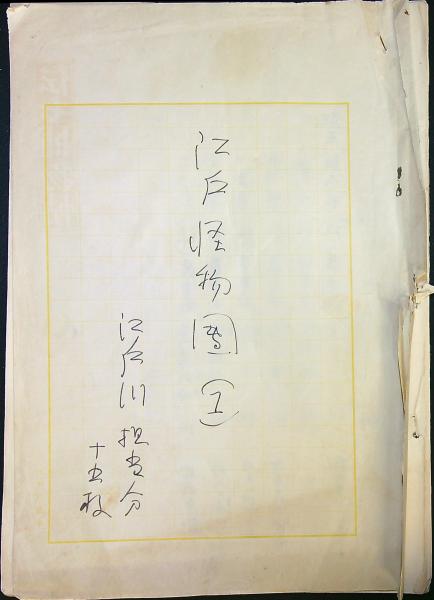 江戸怪物團(1)
江戸川 担当分
十五枚